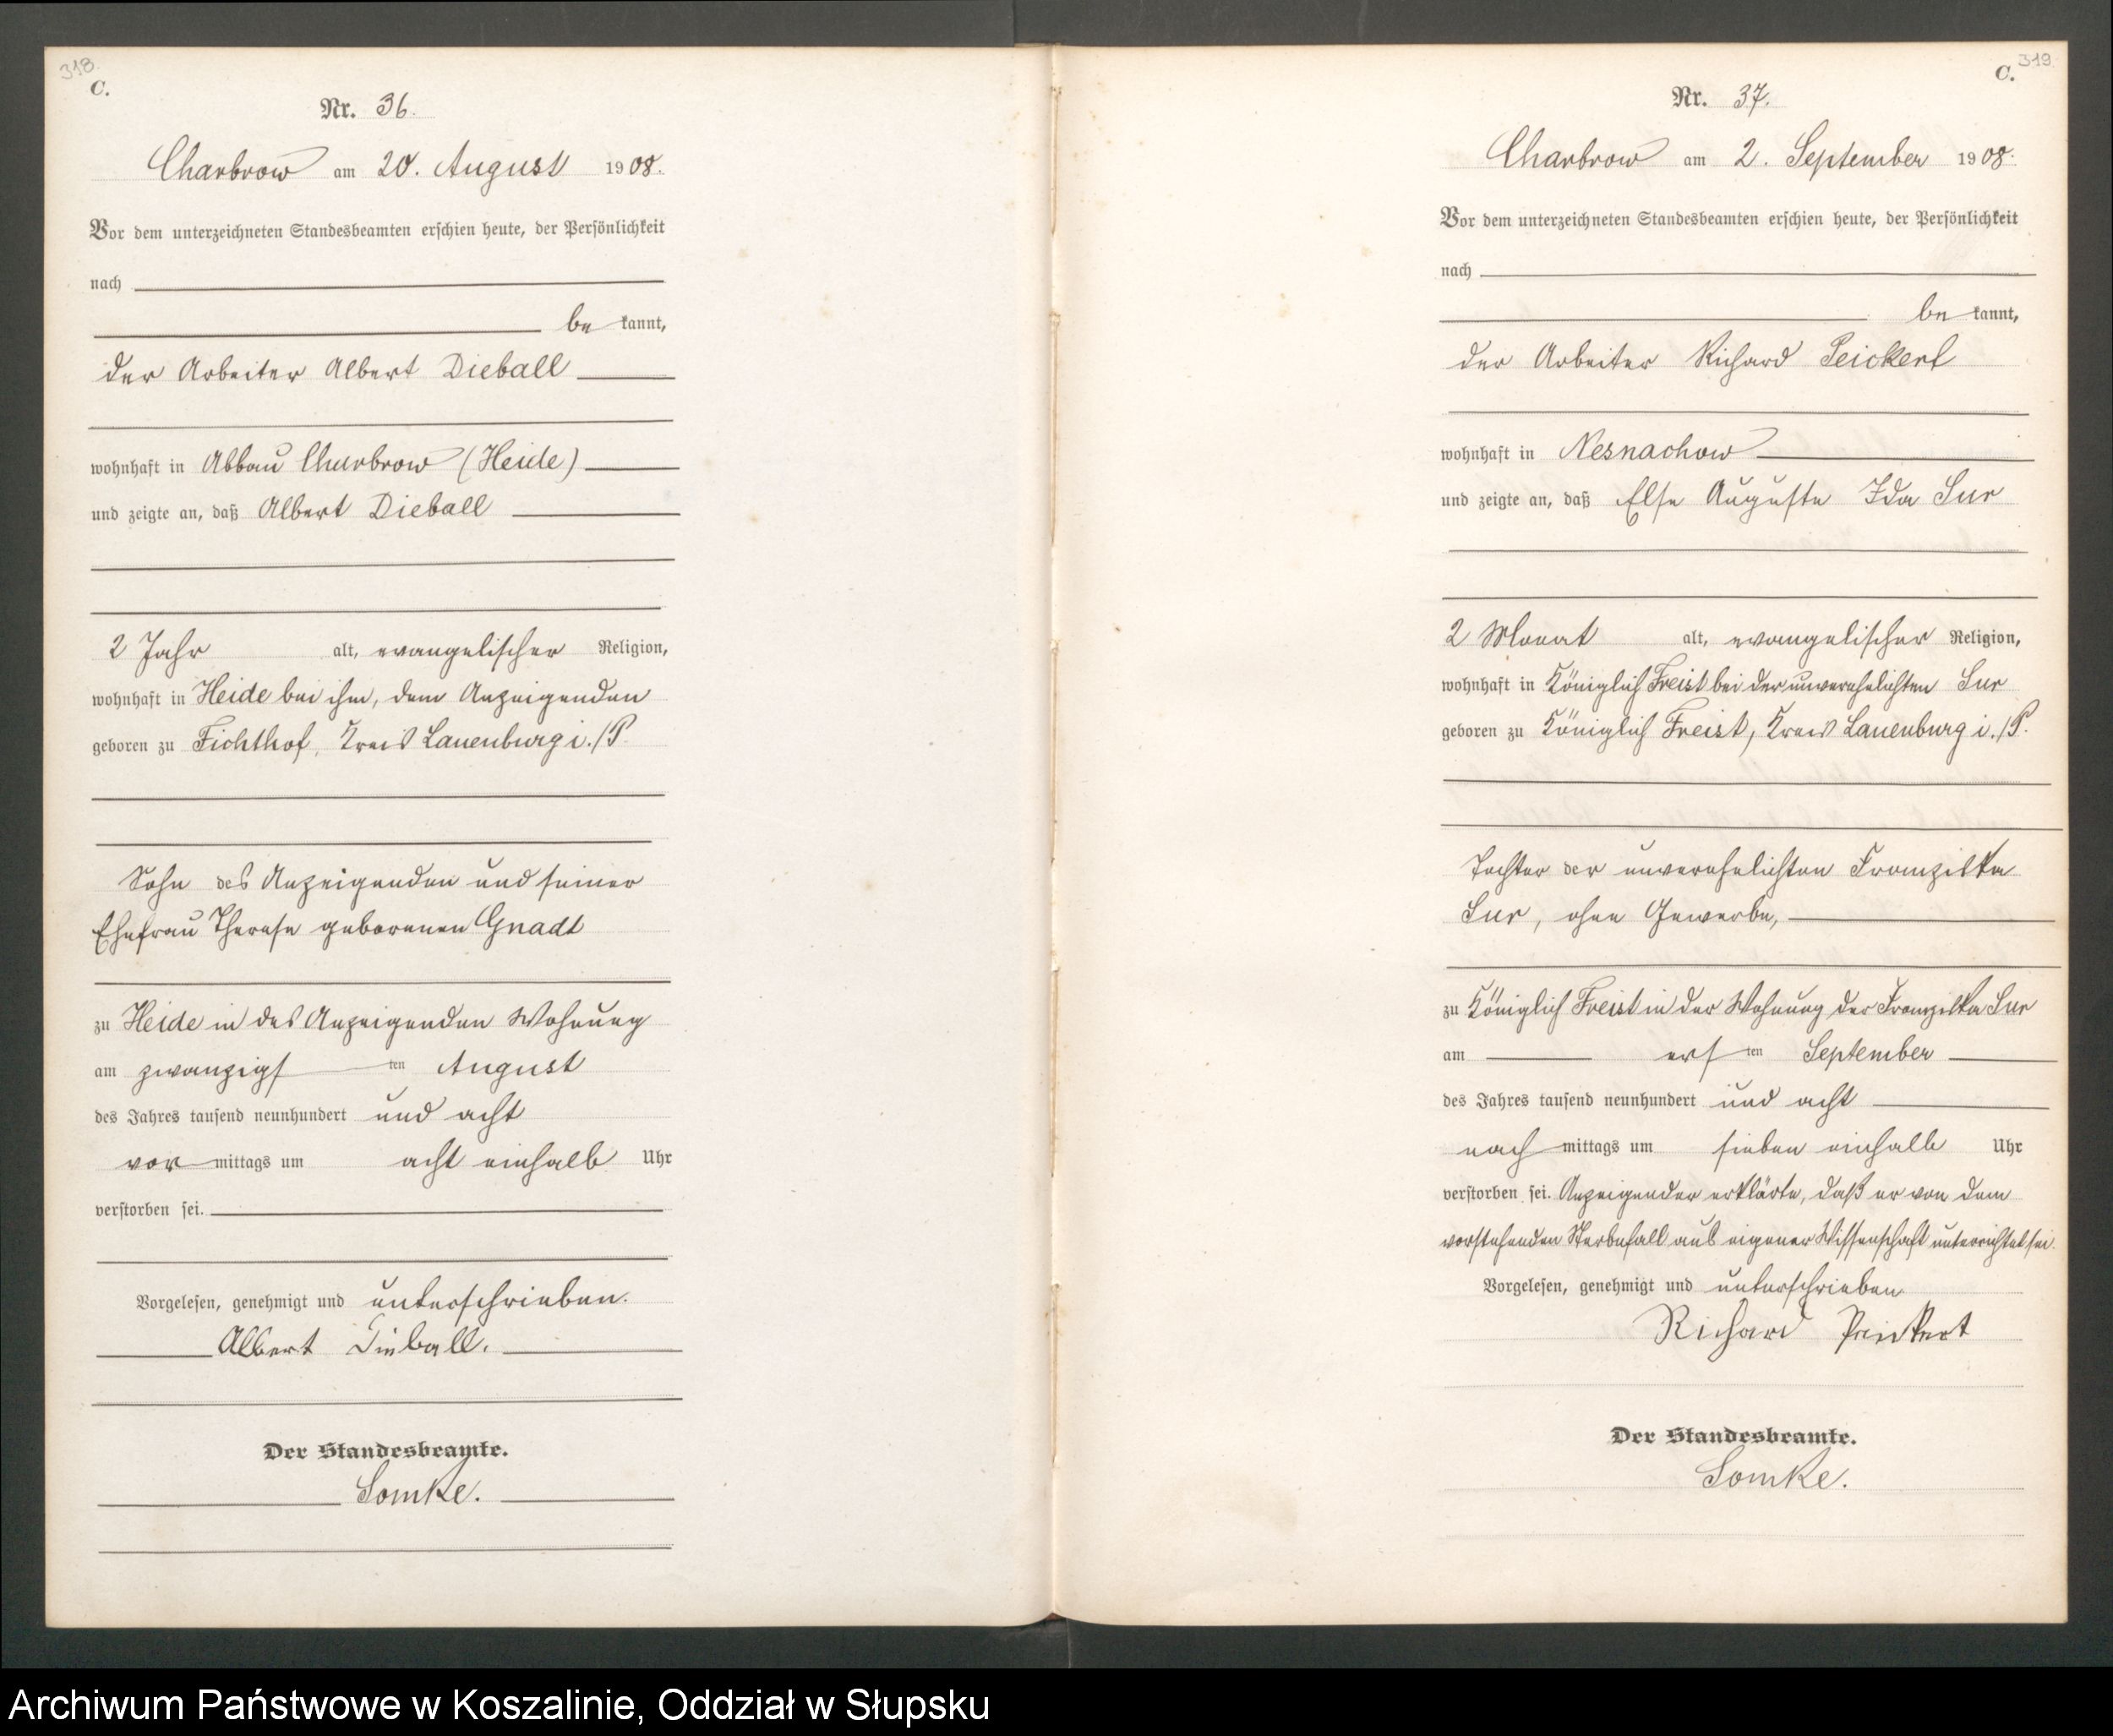 318.
C.
Nr. 36.
Charbrow am 20. August 1908.
Vor dem unterzeichneten Standesbeamten erschien heute, der Persönlichkeit
nach
be kannt,
der Arbeiter Albert Dieball
wohnhaft in Abbau Charbrow (Heide)
und zeigte an, daß Albert Dieball
2 Jahr alt, evangelischer Religion,
wohnhaft in Heide bei ihm, dem Anzeigenden
geboren zu Fichthof, Kreis Lauenburg i./P.
Sohn des Anzeigenden und seiner
Ehefrau Therese geborenen Gnadt
zu Heide in des Anzeigenden Wohnung
am zwanzigs ten August
des Jahres tausend neunhundert und acht
vor mittags um acht einhalb Uhr
verstorben sei.
Vorgelesen, genehmigt und unterschrieben.
Albert Dieball.
Der Standesbeamte.
Lomke.
319
C.
Nr. 37.
Charbrow am 2. September 1908.
Vor dem unterzeichneten Standesbeamten erschien heute, der Persönlichkeit
nach
be kannt,
der Arbeiter Richard Peickert
wohnhaft in Nesnachow
und zeigte an, daß Else Auguste Ida Sur
2 Monat alt, evangelischer Religion,
wohnhaft in Königlich Freist bei der unverehelichten Sur
geboren zu Königlich Freist, Kreis Lauenburg i./P.
Tochter der unverehelichten Franziska
Sur, ohne Gewerbe,
zu Königlich Freist in der Wohnung der Franziska Sur
am ers ten September
des Jahres tausend neunhundert und acht
nach mittags um sieben einhalb Uhr
verstorben sei. Anzeigender erklärte, daß er von dem
vorstehenden Sterbefall aus eigener Wissenschaft unterrichtet sei.
Vorgelesen, genehmigt und unterschrieben
Richard Peickert
Der Standesbeamte.
Lomke.
Archiwum Państwowe w Koszalinie, Oddział w Słupsku